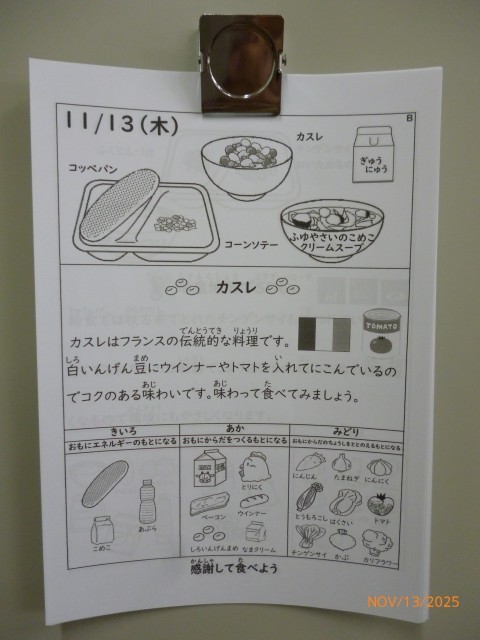 11/13(木)
B
カスレ
ぎゅう
にゅう
コッペパン
コーンソテー
ふゆやさいのこめこ
クリームスープ
カスレ
カスレはフランスの伝統的な料理です。
でんとうてき りょうり
TOMATO
白いんげん豆にウインナーやトマトを入れてにこんでいるの
しろ まめ い
でコクのある味わいです。味わって食べてみましょう。
あじ あじ た
きいろ あか みどり
おもにエネルギーのもとになる おもにからだをつくるもとになる おもにからだのちょうしをととのえるもとになる
とりにく
にんじん たまねぎ にんにく
ベーコン ウインナー
とうもろこし はくさい トマト
こめこ あぶら
しろいんげんまめ なまクリーム
チンゲンサイ かぶ カリフラワー
かんしゃ た
感謝して食べよう
NOV/13/2025